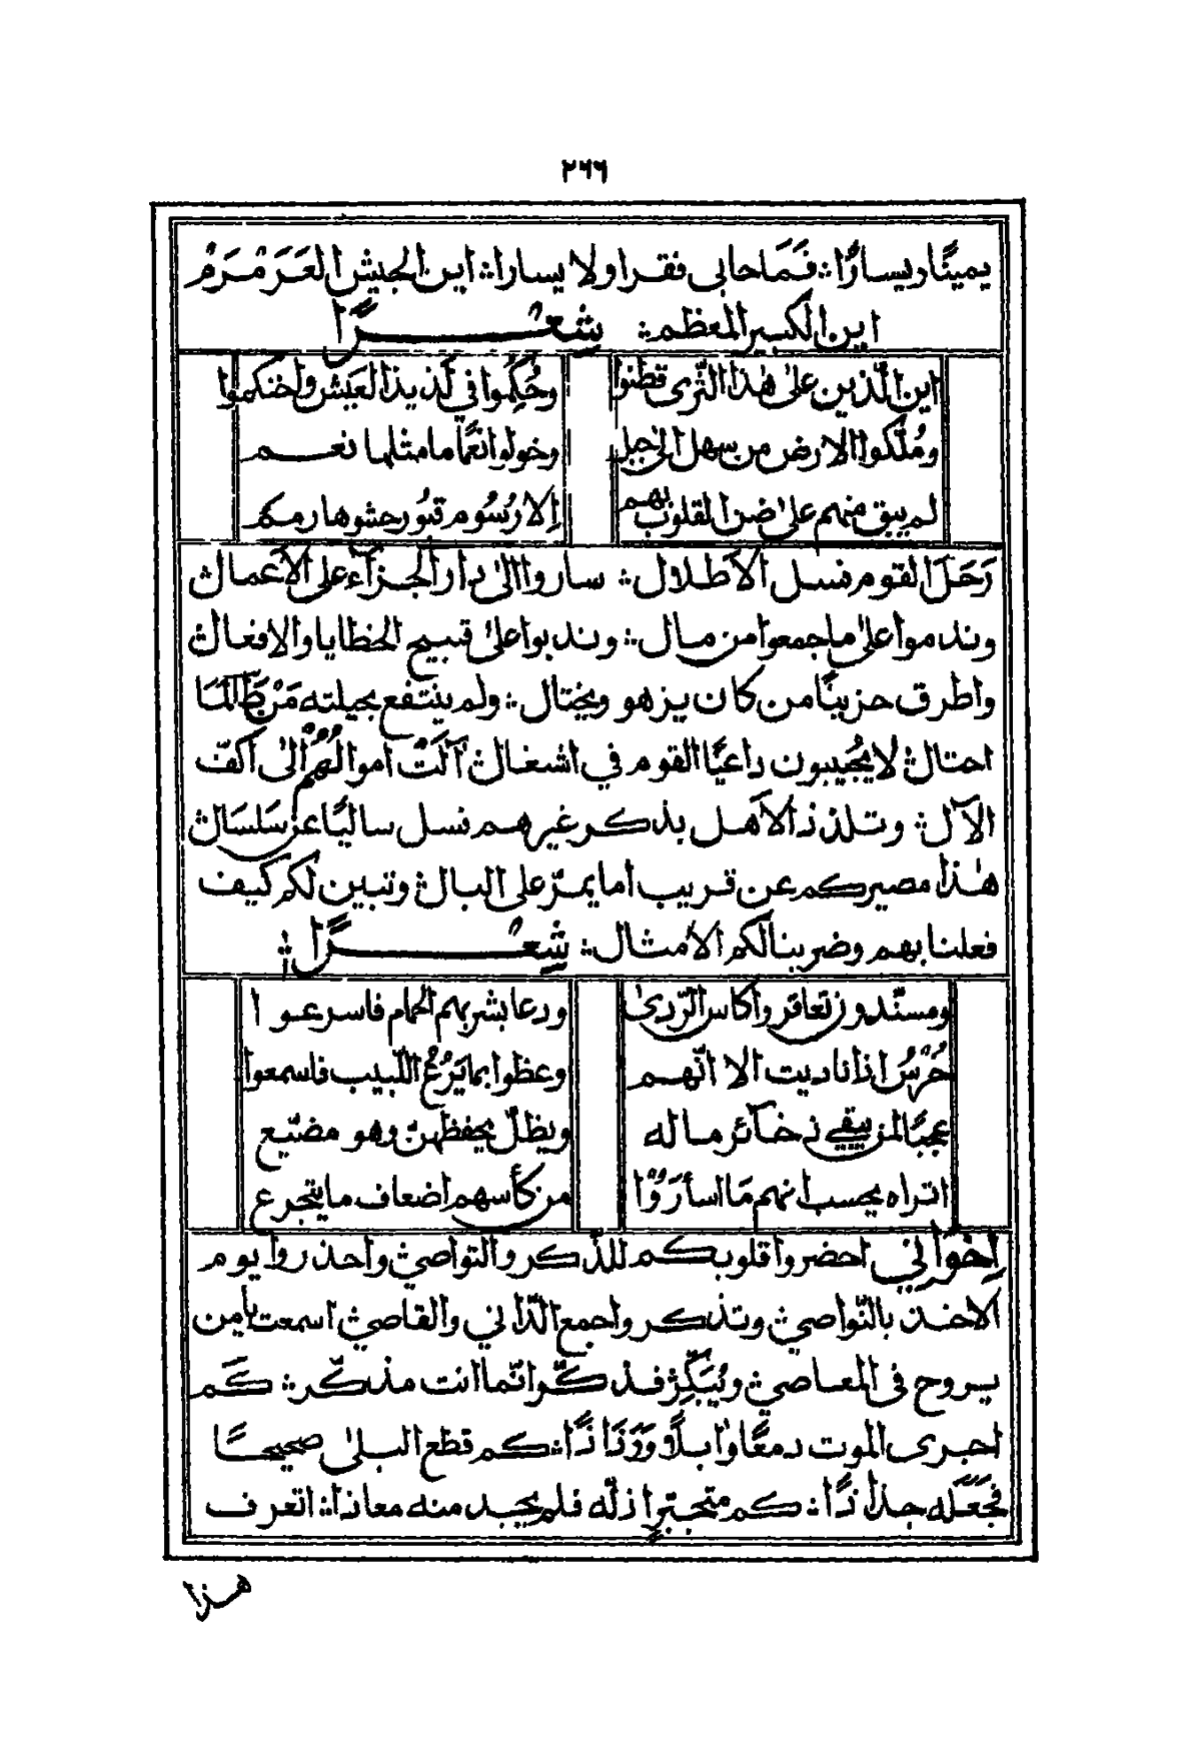 ٢٦٦
يمينًا ويسارًا؞ فَمَا حابى فقرا ولا يسارا؞ اين الجيش العَرَمْرَمْ
اين الكبير المعظم؞ شِعْرًا
اين الّذين علىٰ هٰذا الثّرى قطنوا وحُكِّموا في لذيذ العَيش واحتكموا
ومُلّكوا الارض من سهل الىٰ جبل وخولوا نعمًا ما مثلها نعم
لم يبق منهم علىٰ ضن القلوب بهم اِلا رُسُوم قبُور حشوها رمم
رَحَلَ القوم فسل الاَطلال؞ ساروا الىٰ دار الجزآء على الاَعمال؞
وندموا علىٰ ما جمعوا من مال؞ وندبوا علىٰ قبيح الخطايا والافعال؞
واطرق حزينًا من كان يزهو ويختال؞ ولم ينتفع بحيلته مَنْ طَالَمَا
احتال؞ لا يُجيبون داعيًا القوم في اشغال؞ آلَتْ اموالُهُمْ الىٰ اَكفّ
الآل؞ وتلذذ الاَهل بذكر غيرهم فسل ساليًا عن سَلسَال؞
هٰذا مصيركم عن قريب اما يمرّ على البال؞ وتبين لكم كيف
فعلنا بهم وضربنا لكم الاَمثال؞ شِعْرًا؞
ومسنّدون تعاقروا كاس الرّدىٰ ودعا بشربهم الحمام فاسرعوا
خُرْسٌ اذا ناديت الا انّهم وعظوا بما يَزَعُ اللّبيب فاسمعوا
عجبًا لمن يبقي ذخآئر ماله ويظلّ يحفظهنّ وهو مضيّع
اتراه يحسب انهم مَا اسأرَوُا من كأسهم اضعاف ما يتجرع
اِخْوَانِي احضروا قلوبكم للذّكر والتّواصي؞ واحذروا يوم
الاَخذ بالنّواصي؞ وتذكروا جمع الدّاني والقاصي؞ اسمعت يا من
يروح في المعاصي؞ ويُبَكِّرْ؞ فذكّر انّما انت مذكّر؞ كَم
اجرى الموت دمعًا وابلاً ورَذَاذًا؞ كم قطع البلىٰ صحيحًا
فجَعَلَه جذاذًا؞ كم متجبّر اذلّه فلم يجد منه معاذا؞ اتعرف
هذا